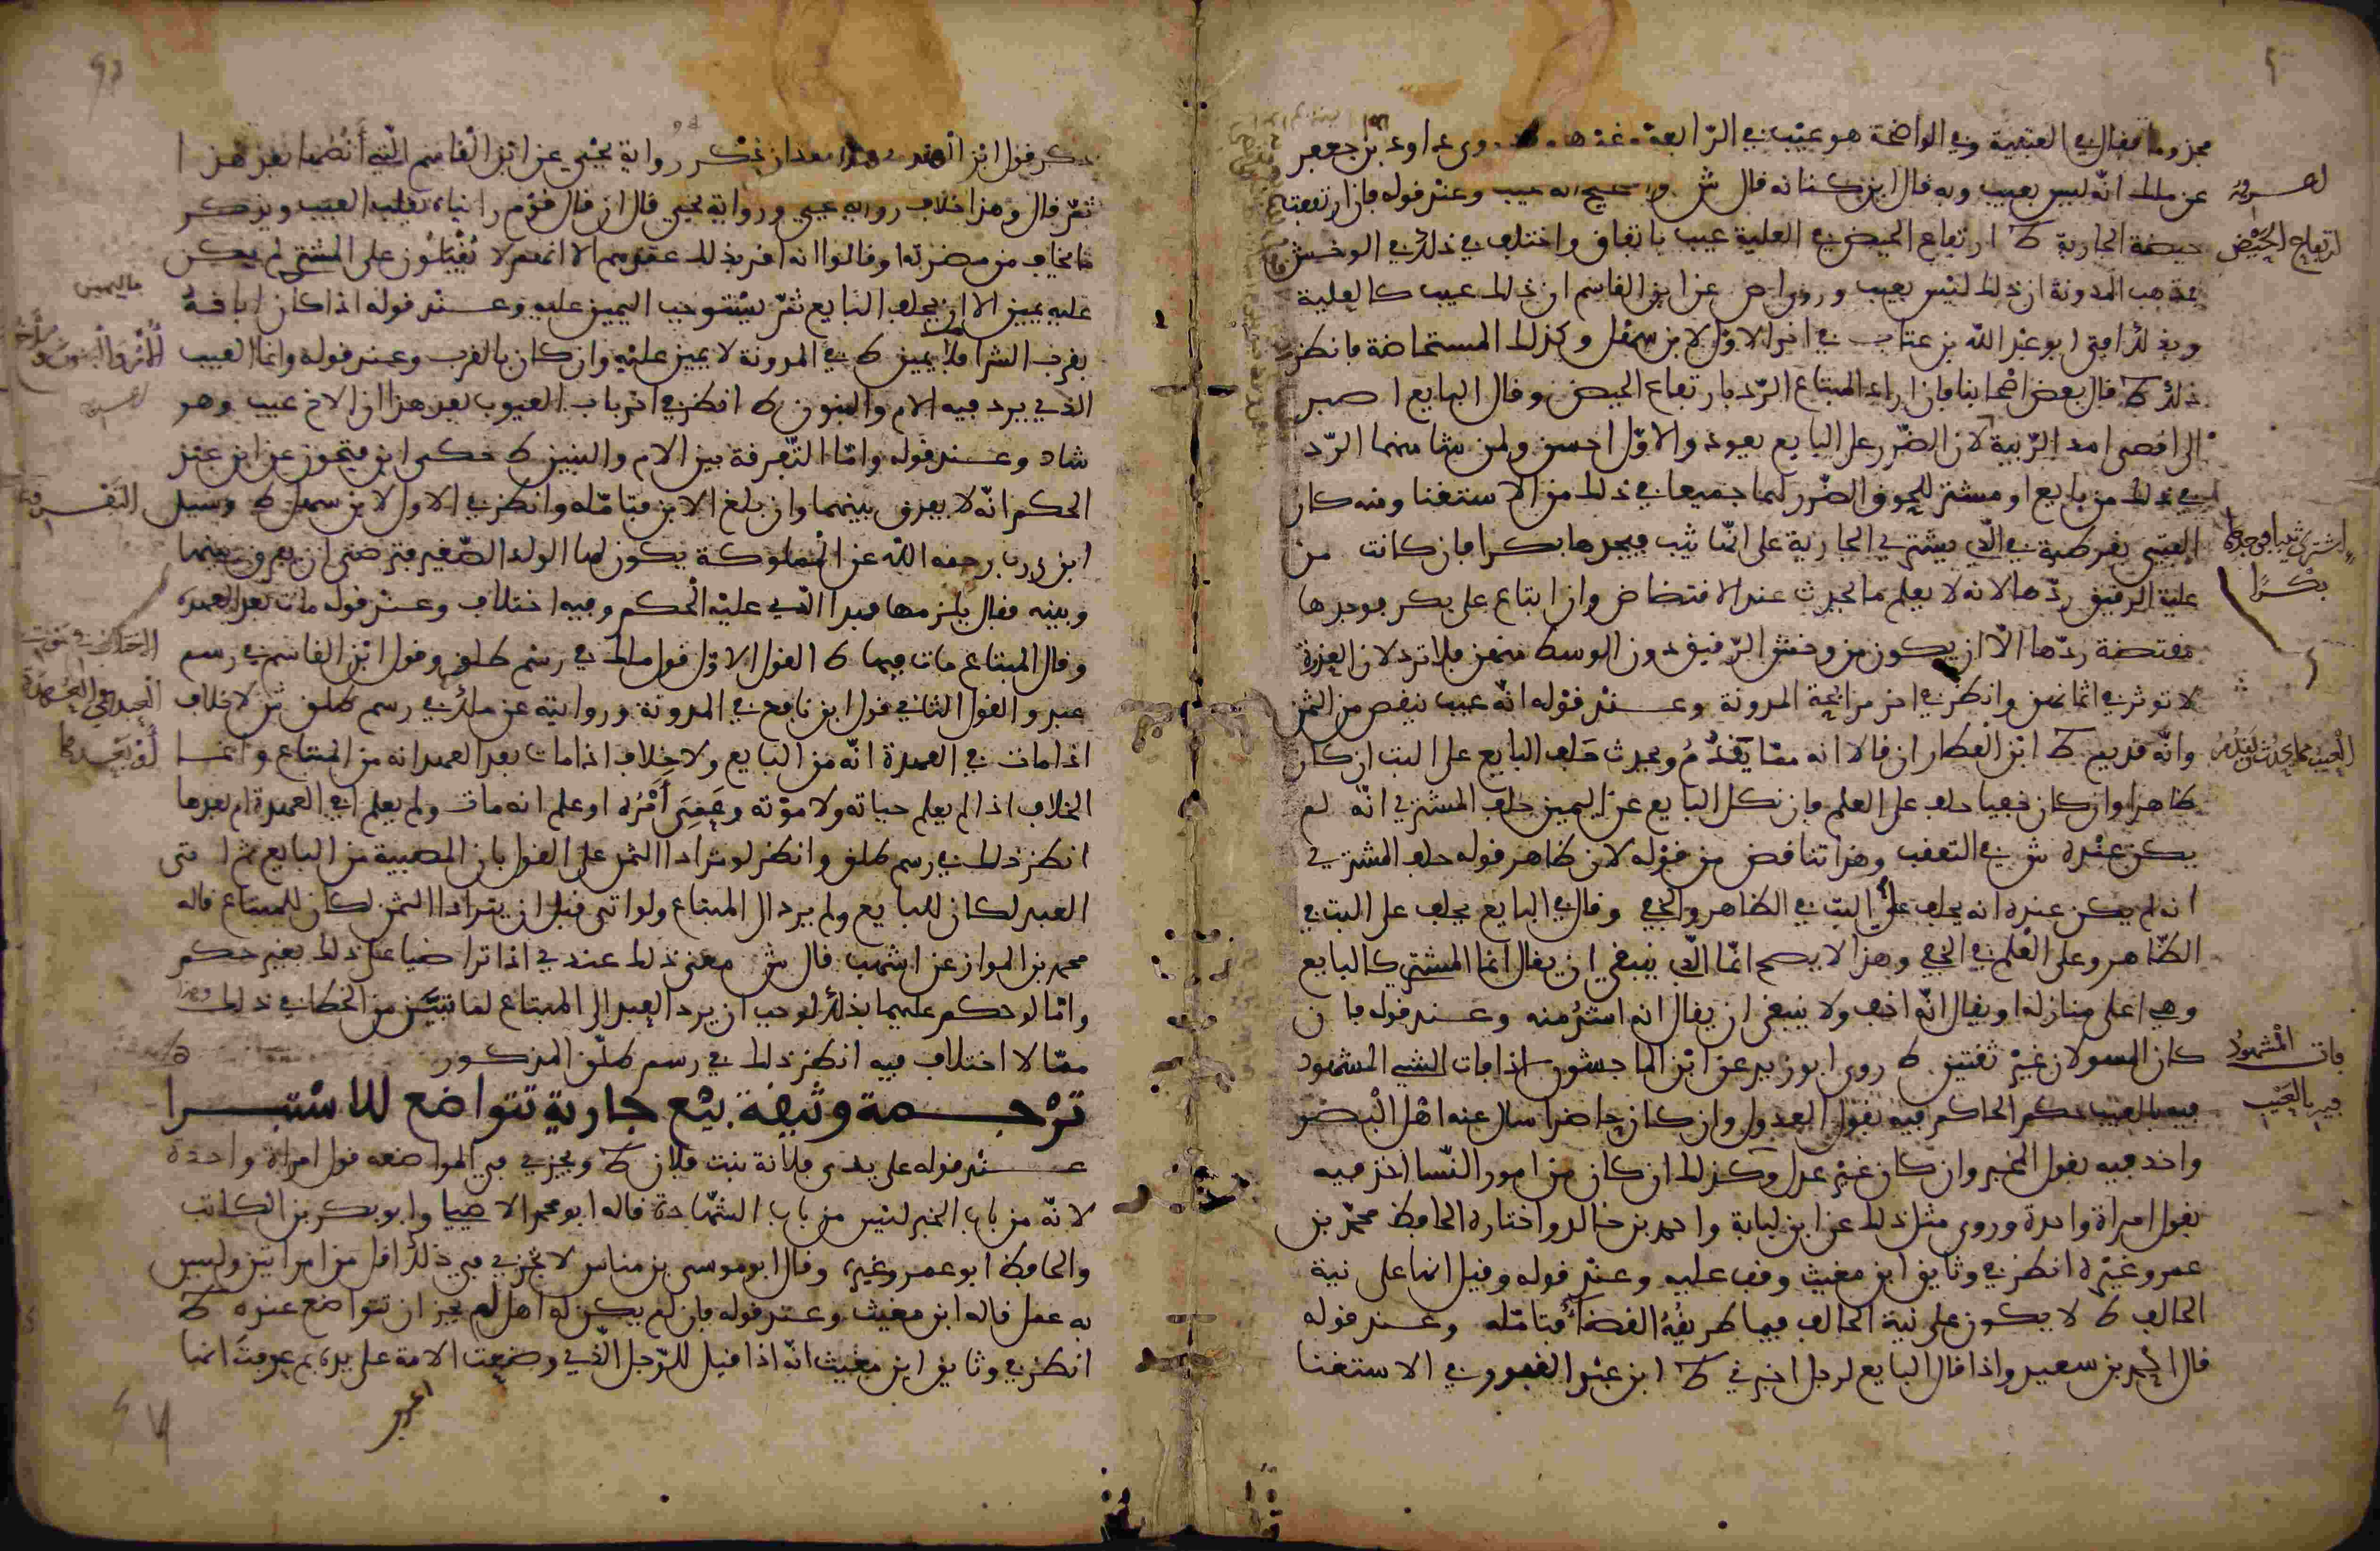 مجزوما فقال في العتبية وفي الواضحة هو عيب في الرابعة وروى داود بن جعفر
عن ملك انه ليس بعيب وبه قال ابن كنانة قال ش والصحيح انه عيب وعند قوله فان ارتفعت
حيضة الجارية ط ارتفاع الحيض في العلية عيب باتفاق واختلف في ذلك في الوخش
فمذهب المدونة ان ذلك ليس بعيب وروى عن ابن القاسم ان ذلك عيب كالعلية
وبذلك افتى ابو عبد الله بن عتاب في اخر الاول لابن سهل وكذلك المستحاضة فانظر
ذلك ط قال بعض اصحابنا فان اراد المبتاع الرد بارتفاع الحيض وقال البايع اصبر
الى اقصى امد الريبة لان الضرر على البايع يعود والاول احسن ولمن شا منهما الرد
في ذلك من بايع او مشتر للحوق الضرر لهما جميعا في ذلك من الاستغنا ومنه كان
العتبي يفرط في الذي يشتري الجارية على انها ثيب فيجدها بكرا فان كانت من
علية الرقيق ردها لانه لا يعلم ما يحدث عند الافتضاض وان ابتاع على بكر فوجدها
مفتضة ردها الا ان يكون من وخش الرقيق دون الوسط منهن فلا ترد لان العذرة
لا توثر في اثمانهن وانظر في اخر مرابحة المدونة وعند قوله انه عيب ينقص من الثمن
وانه قديم ط ابن العطار ان قالا انه مما يقدم ويحدث حلف البايع على البت ان كان
ظاهرا وان كان خفيا حلف على العلم فان نكل البايع عن اليمين حلف المشتري انه لم
يكن عنده ش في التعقب وهذا تناقض من قوله لان ظاهر قوله حلف المشتري
انه لم يكن عنده انه يحلف على البت في الظاهر والخفي وقال في البايع يحلف على البت في
الظاهر وعلى العلم في الخفي وهذا لا يصح انما الذي ينبغي ان يقال انما المشتري كالبايع
وهي اعلى منازله او يقال انه اخف ولا ينبغي ان يقال انه اشد منه وعند قوله فان
كان المسولان غير ثقتين ط روى ابو زيد عن ابن الماجشون اذا فات الشيء المشهود
فيه بالعيب حكم الحاكم فيه بقول العدول وان كان حاضرا سال عنه اهل البصر
واخد فيه بقول المخبر وان كان غير عدل وكذلك ان كان من امور النسا اخذ فيه
بقول امراة واحدة وروى مثل ذلك عن ابن لبابة واحمد بن خالد واختاره الحافظ محمد بن
عمر وغيره انظر في وثايق ابن مغيث وقف عليه وعند قوله وقيل انها على نية
الحالف ط لا يكون على نية الحالف فيما طريقه القضا فتامله وعند قوله
قال احمد بن سعيد واذا قال البايع لرجل اخبرني ط ابن عبد الغفور في الاستغنا
ارتفاع الحيض
اشترى ثيبا فوجدها
بكرا
العيب مما يحدث ويقدم
فات المشهود
فيه بالعيب
ذكر قول ابن الهندي هذا بعد ان ذكر رواية يحيى عن ابن القاسم التي انصها بعد هذا
ثم قال وهذا خلاف رواية عيسى ورواية يحيى قال ان قال قوم راينا به العيب ويذكر
ما يخاف من مضرته او قالوا انه اقر بذلك عندهم الا انهم لا يقبلون على المشتري لم يكن
عليه يمين الا ان يحلف البايع ثم يستوجب اليمين عليه وعند قوله اذا كان اباقه
بقرب الشرا فلا يمين ط في المدونة لا يمين عليه وان كان بالقرب وعند قوله وانما العيب
الذي يرد فيه الام والبنون ط انظر في اخر باب العيوب بعد هذا ان الاخ عيب وهو
شاذ وعند قوله واما التفرقة بين الام والبنين ط حكى ابن فتحون عن ابن عبد
الحكم انه لا يفرق بينهما وان بلغ الابن فتامله وانظر في الاول لابن سهل ط وسيل
ابن زرب رحمه الله عن المملوكة يكون لها الولد الصغير فترضى ان يفرق بينهما
وبينه فقال يلزمها هذا الذي عليه الحكم وفيه اختلاف وعند قوله مات بعد العهدة
وقال المبتاع مات فيها ط القول الاول قول ملك في رسم طلق وقول ابن القاسم في رسم
عبد والقول الثاني قول ابن نافع في المدونة وروايته عن ملك في رسم طلق ش لا خلاف
اذا مات في العهدة انه من البايع ولا خلاف اذا مات بعد العهد انه من المبتاع وانما
الخلاف اذا لم يعلم حياته ولا موته وعمي امره او علم انه مات ولم يعلم افي العهدة ام بعدها
انظر ذلك في رسم طلق وانظر لو ترادا الثمن على القول بان المصيبة من البايع ثم اتى
العبد لكان للبايع ولم يرد الى المبتاع ولو اتى قبل ان يترادا الثمن لكان للمبتاع قاله
محمد بن المواز عن اشهب قال ش معنى ذلك عندي اذا تراضيا على ذلك بغير حكم
واما لو حكم عليهما بذلك لوجب ان يرد العبد الى المبتاع لما تبين من الخطا في ذلك وهذا
مما لا اختلاف فيه انظر ذلك في رسم طلق المذكور
ترجمة وثيقة بيع جارية تتواضع للاستبرا
عند قوله على يدي فلانة بنت فلان ط ويجزي في المواضعه قول امراة واحدة
لانه من باب الخبر ليس من باب الشهادة قاله ابو محمد الاصيلي وابو بكر بن الكاتب
والحافظ ابو عمر وغيره وقال ابو موسى بن مناس لا يجزي في ذلك اقل من امراتين وليس
به عمل قاله ابن مغيث وعند قوله فان لم يكن له اهل لم يجز ان تتواضع عنده ط
انظر في وثايق ابن مغيث انه اذا قيل للرجل الذي وضعت الامة على يده بم عرفت انها